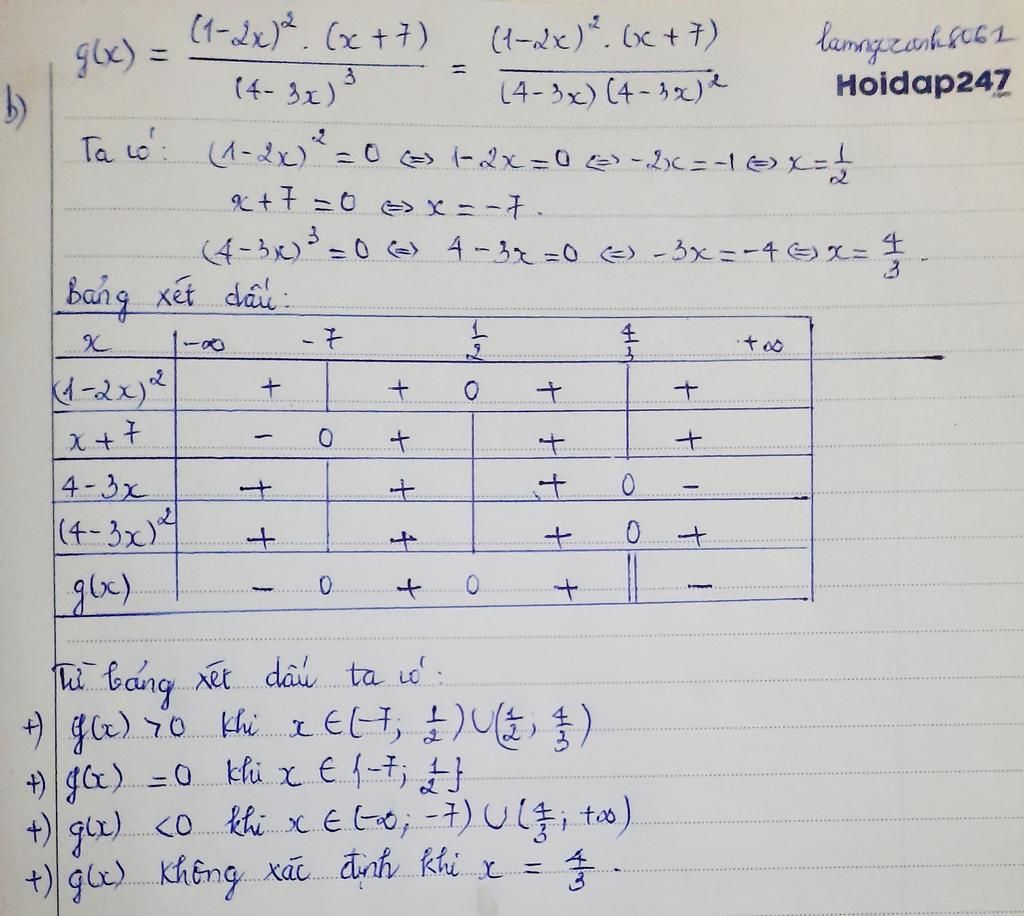 b) g(x) = (1-2x)² . (x+7) / (4-3x)³ = (1-2x)² . (x+7) / (4-3x)(4-3x)²
Hoidap247
Ta có: (1-2x)² = 0 ⇔ 1-2x = 0 ⇔ -2x = -1 ⇔ x = 1/2
x+7 = 0 ⇔ x = -7.
(4-3x)³ = 0 ⇔ 4-3x = 0 ⇔ -3x = -4 ⇔ x = 4/3.
Bảng xét dấu:
x | -∞ -7 1/2 4/3 +∞
(1-2x)² | + | + 0 + | +
x+7 | - 0 + | + | +
4-3x | + | + | + 0 -
(4-3x)² | + | + | + 0 +
g(x) | - 0 + 0 + || -
Từ bảng xét dấu ta có:
+) g(x) > 0 khi x ∈ (-7; 1/2) ∪ (1/2; 4/3)
+) g(x) = 0 khi x ∈ {-7; 1/2}
+) g(x) < 0 khi x ∈ (-∞; -7) ∪ (4/3; +∞)
+) g(x) không xác định khi x = 4/3.